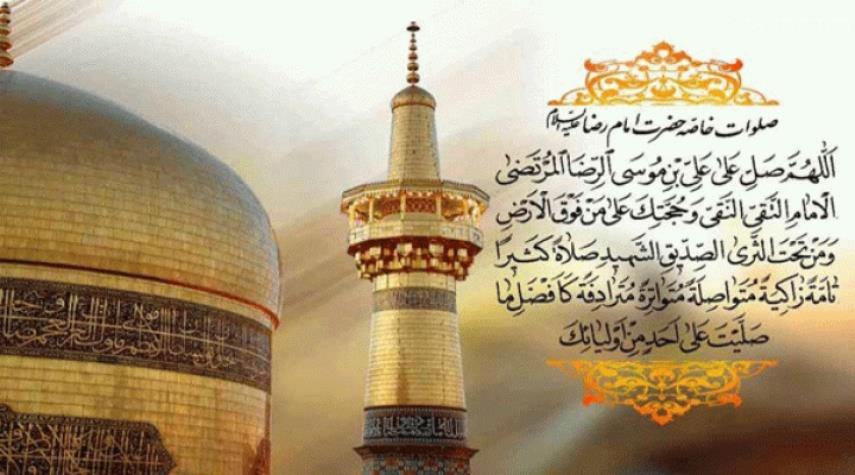 صلوات خاصّه حضرت امام رضا علیه السلام
اَللّهُمَّ صَلِّ عَلى عَلِیِّ بْنِ مُوسَى اَلرِّضَا الْمُرْتَضى
الْاِمامِ التَّقِیِّ النَّقِیِّ وَحُجَّتِكَ عَلى مَنْ فَوْقَ الْاَرْضِ
وَمَنْ تَحْتَ الثَّرى الصِّدّیقِ الشَّهیدِ صَلاةً كَثیرَةً
تامَّةً زاكِیَةً مُتَواصِلَةً مُتَواتِرَةً مُتَرادِفَةً كَاَفْضَلِ ما
صَلَّیْتَ عَلى اَحَدٍ مِنْ اَوْلِیائِكَ